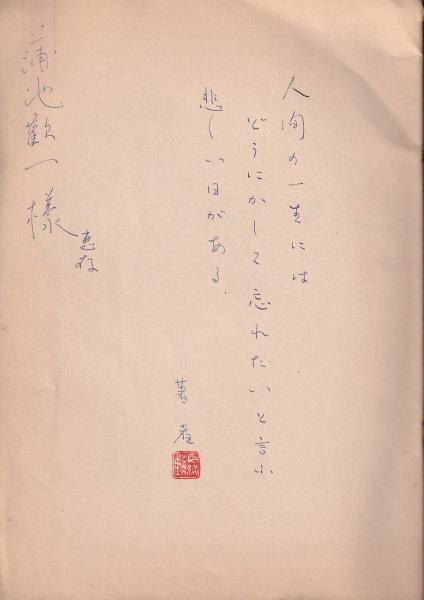 人間の一生には
どうにかして忘れたいと言ふ
悲しい日がある.
著者
蒲池歓一様
恵存